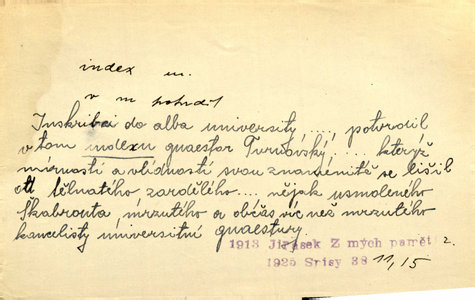 index m.
v m pohodě
Inskribci do alba university, ..., potvrdil
v tom indexu quaestor Turnovský, ... kterýž
mírností a vlídností svou znamenitě se lišil
od tělnatého, zardělého .... nějak usmoleného
Škabronta, mrzutého a občas víc než mrzutého
kancelisty universitní quaestury.
1913 Jirásek Z mých pamětí 2.
1925 Spisy 38 11,15